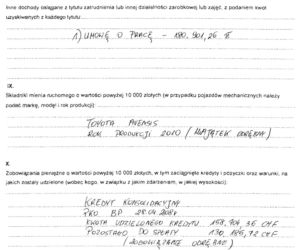 Inne dochody osiągane z tytułu zatrudnienia lub innej działalności zarobkowej lub zajęć, z podaniem kwot
uzyskiwanych z każdego tytułu:
1) UMOWĘ O PRACĘ – 180.901,26 zł
IX.
Składniki mienia ruchomego o wartości powyżej 10 000 złotych (w przypadku pojazdów mechanicznych należy
podać markę, model i rok produkcji):
TOYOTA AVENSIS
ROK PRODUKCJI 2010 / MAJĄTEK ODRĘBNY /
X.
Zobowiązania pieniężne o wartości powyżej 10 000 złotych, w tym zaciągnięte kredyty i pożyczki oraz warunki, na
jakich zostały udzielone (wobec kogo, w związku z jakim zdarzeniem, w jakiej wysokości):
KREDYT KONSOLIDACYJNY
PKO BP
KWOTA UDZIELONEGO KREDYTU 158.904,36 CHF
POZOSTAŁO DO SPŁATY CHF
/ ZOBOWIĄZANIE ODRĘBNE /